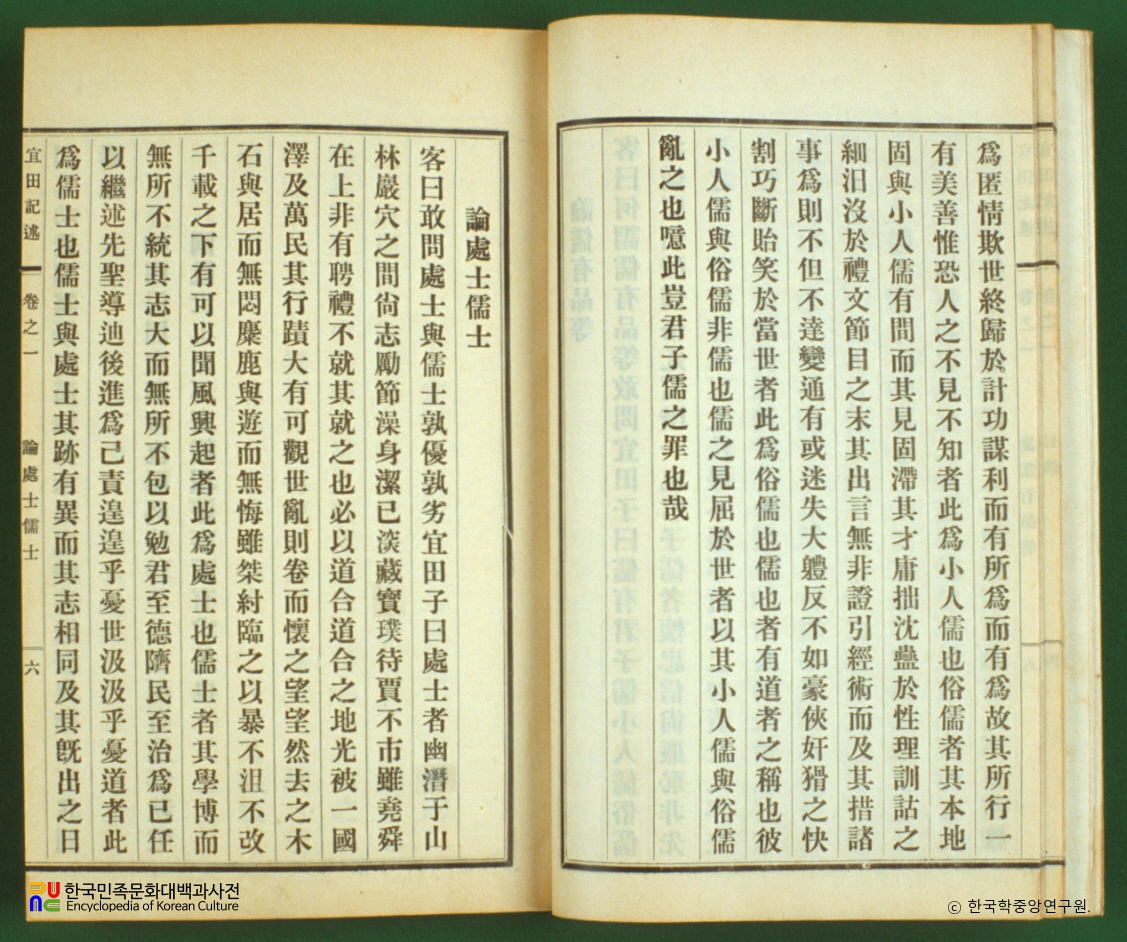 爲匿情欺世終歸於計功謀利而有所爲而有爲故其所行一
有美善惟恐人之不見不知者此爲小人儒也俗儒者其本地
固與小人儒有間而其見固滯其才庸拙沈蠱於性理訓詁之
細汨沒於禮文節目之末其出言無非證引經術而及其措諸
事爲則不但不達變通有或迷失大軆反不如豪俠奸猾之快
割巧斷貽笑於當世者此爲俗儒也儒也者有道者之稱也彼
小人儒與俗儒非儒也儒之見屈於世者以其小人儒與俗儒
亂之也噫此豈君子儒之罪也哉
論處士儒士
客曰敢問處士與儒士孰優孰劣宜田子曰處士者幽潛于山
林巖穴之間尙志勵節澡身潔已淡藏寶璞待賈不市雖堯舜
在上非有聘禮不就其就之也必以道合道合之地光被一國
澤及萬民其行蹟大有可觀世亂則卷而懷之望望然去之木
石與居而無悶麋鹿與遊而無悔雖桀紂臨之以暴不沮不改
千載之下有可以聞風興起者此爲處士也儒士者其學博而
無所不統其志大而無所不包以勉君至德隮民至治爲已任
以繼述先聖導迪後進爲己責遑遑乎憂世汲汲乎憂道者此
爲儒士也儒士與處士其跡有異而其志相同及其旣出之日
宜田記述 卷之一 論處士儒士 六
한국민족문화대백과사전
Encyclopedia of Korean Culture
ⓒ 한국학중앙연구원.